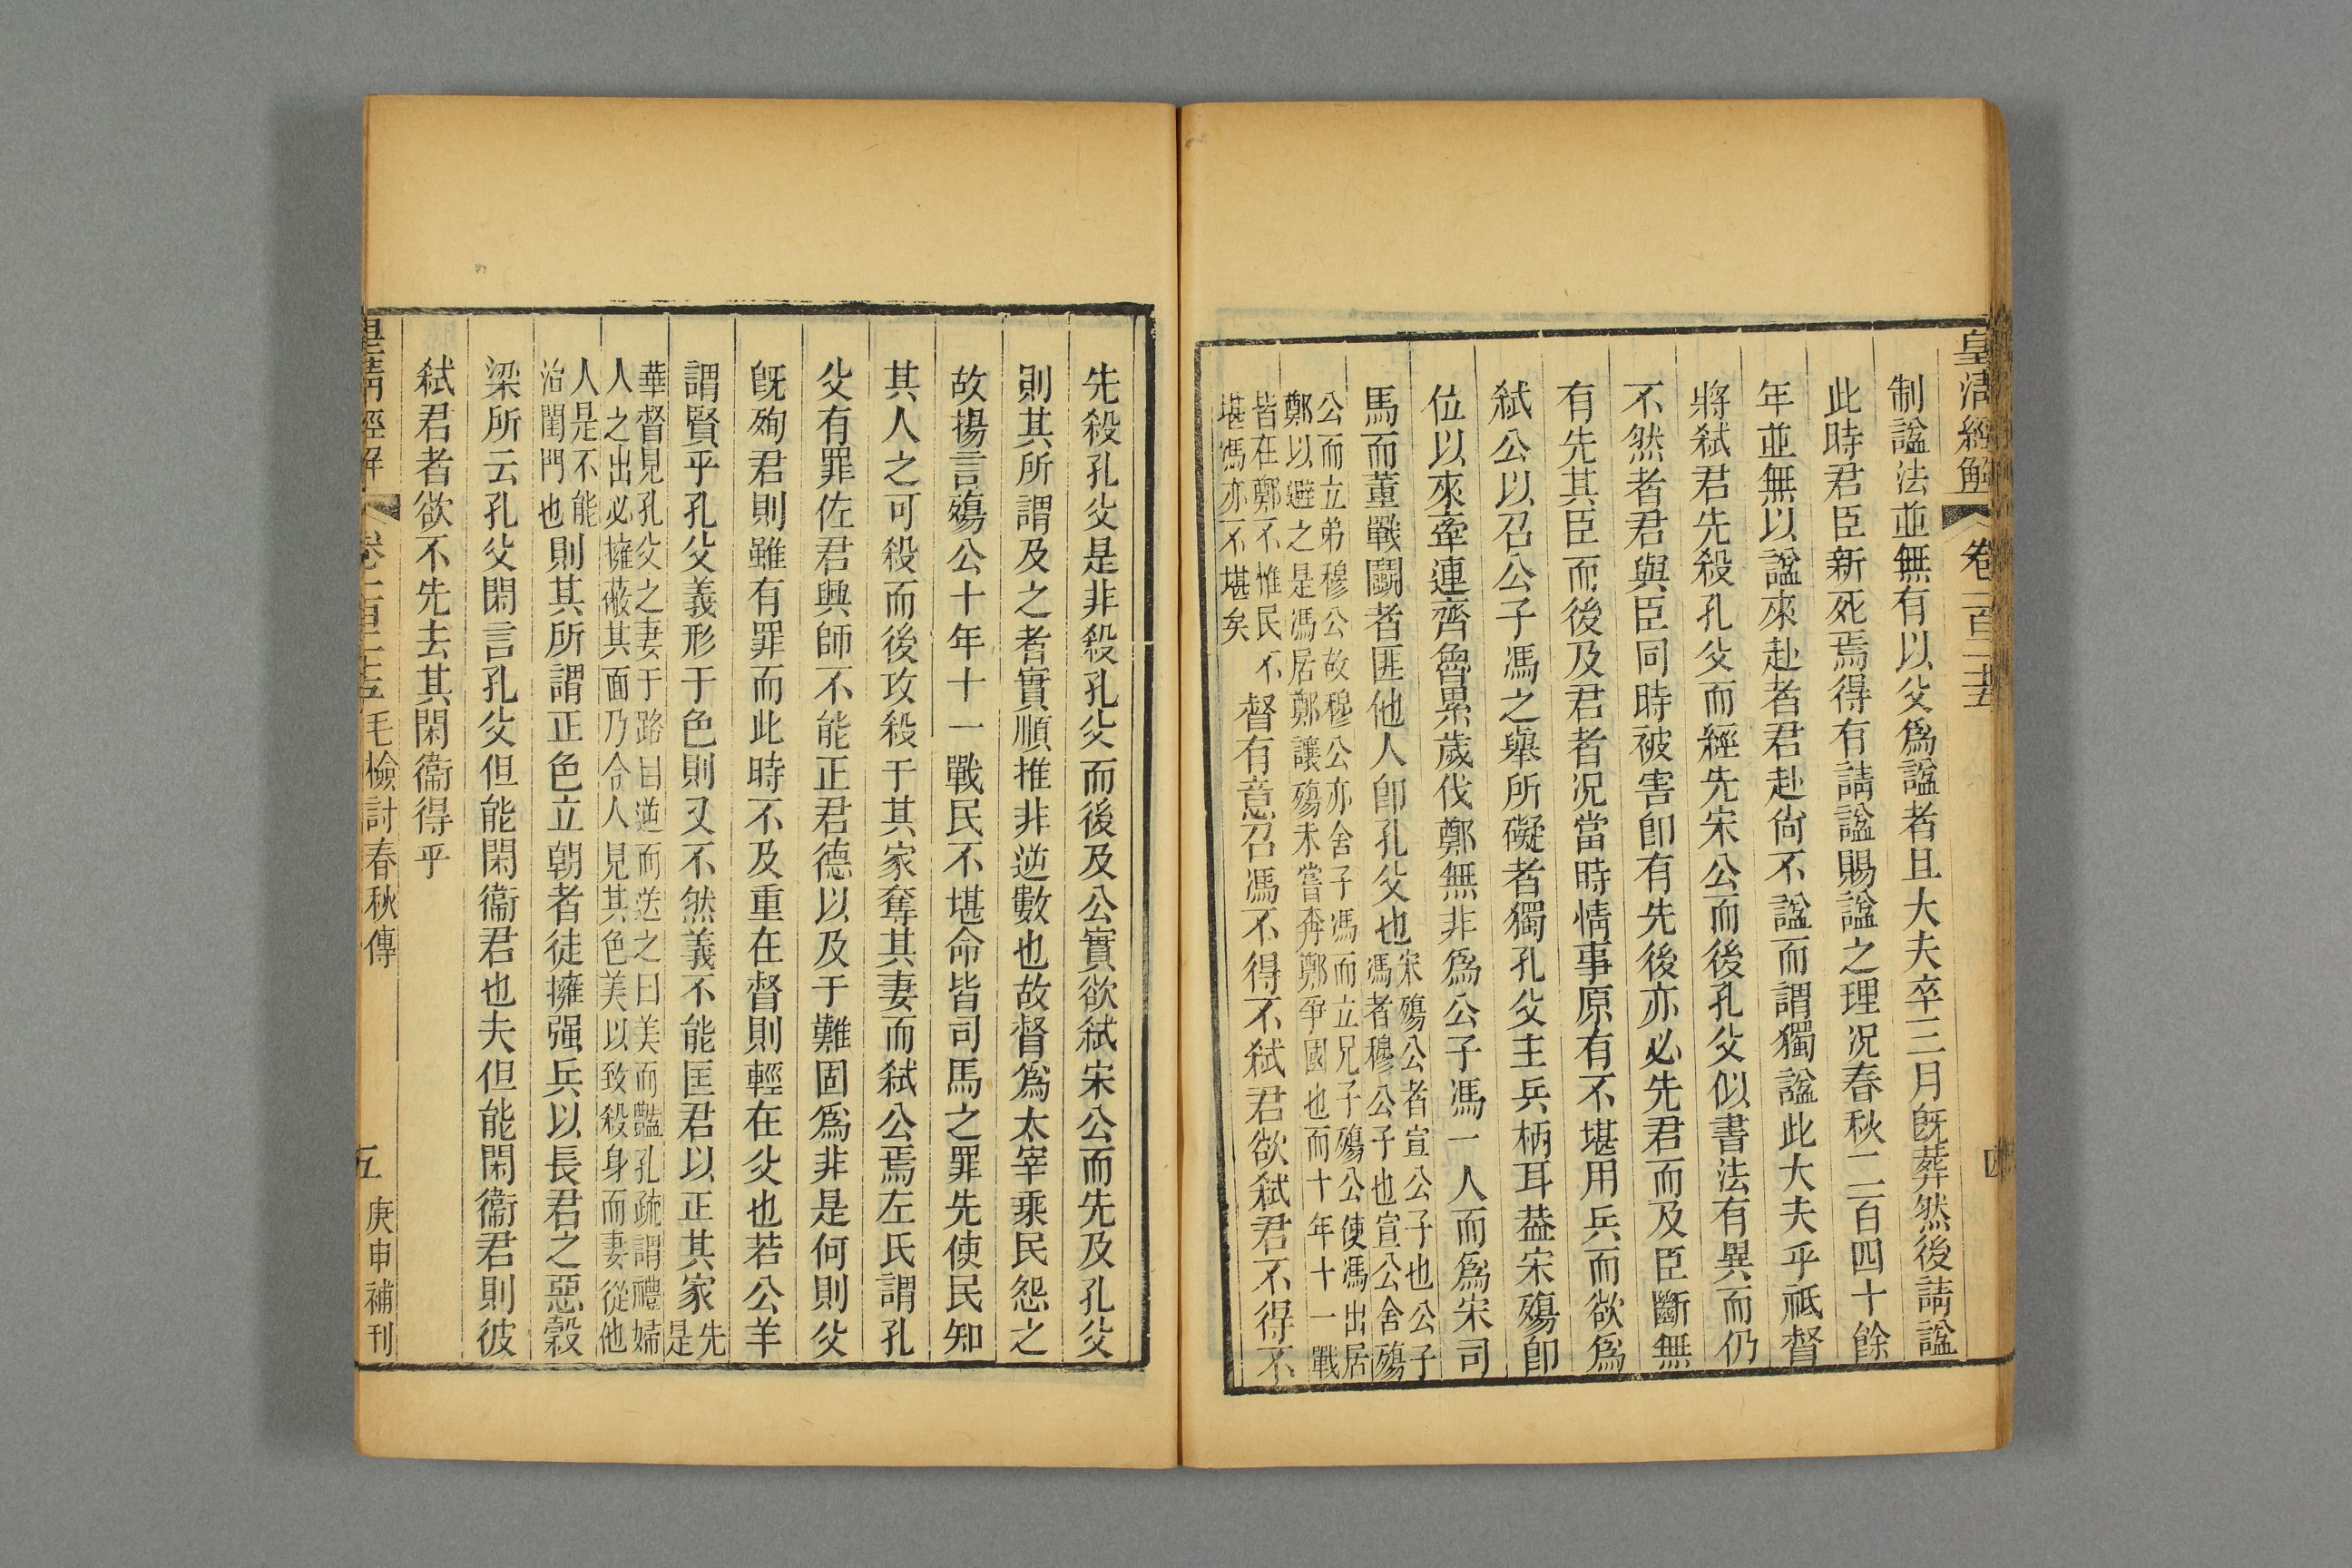 皇清經解 卷一百二十五 四
制諡法並無有以父爲諡者且大夫卒三月旣葬然後請諡
此時君臣新死焉得有請諡賜諡之理况春秋二百四十餘
年並無以諡來赴者君赴尙不諡而謂獨諡此大夫乎祇督
將弑君先殺孔父而經先宋公而後孔父似書法有異而仍
不然者君與臣同時被害卽有先後亦必先君而及臣斷無
有先其臣而後及君者况當時情事原有不堪用兵而欲爲
弑公以召公子馮之舉所礙者獨孔父主兵柄耳葢宋殤卽
位以來牽連齊魯累歲伐鄭無非爲公子馮一人而爲宋司
馬而董戰鬭者匪他人卽孔父也宋殤公者宣公子也公子
馮者穆公子也宣公舍殤
公而立弟穆公故穆公亦舍子馮而立兄子殤公使馮出居
鄭以避之是馮居鄭讓殤未嘗奔鄭爭國也而十年十一戰
皆在鄭不惟民不
堪馮亦不堪矣
督有意召馮不得不弑君欲弑君不得不
先殺孔父是非殺孔父而後及公實欲弑宋公而先及孔父
則其所謂及之者實順推非逆數也故督爲太宰乘民怨之
故揚言殤公十年十一戰民不堪命皆司馬之罪先使民知
其人之可殺而後攻殺于其家奪其妻而弑公焉左氏謂孔
父有罪佐君興師不能正君德以及于難固爲非是何則父
旣殉君則雖有罪而此時不及重在督則輕在父也若公羊
謂賢乎孔父義形于色則又不然義不能匡君以正其家先
是
華督見孔父之妻于路目逆而送之曰美而豔孔疏謂禮婦
人之出必擁蔽其面乃令人見其色美以致殺身而妻從他
人是不能
治閨門也
則其所謂正色立朝者徒擁强兵以長君之惡穀
梁所云孔父閑言孔父但能閑衞君也夫但能閑衞君則彼
弑君者欲不先去其閑衞得乎
皇淸經解 卷一百二十五毛檢討春秋傳 五 庚申補刊